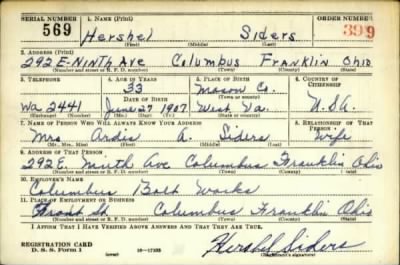 SERIAL NUMBER 1. NAME (Print) ORDER NUMBER
569 Hershel Siders 399
(First) (Middle) (Last)
2. ADDRESS (Print)
292 E. NINTH AVE Columbus Franklin Ohio
(Number and street or R. F. D. number) (Town) (County) (State)
3. TELEPHONE 4. AGE IN YEARS 5. PLACE OF BIRTH 6. COUNTRY OF CITIZENSHIP
33 Mason Co.
DATE OF BIRTH
Wa 2441 June 27 1907 West Va. U.S.A.
(Exchange) (Number) (Mo.) (Day) (Yr.) (State or country)
7. NAME OF PERSON WHO WILL ALWAYS KNOW YOUR ADDRESS 8. RELATIONSHIP OF THAT PERSON
Mrs Ardis A. Siders Wife
(Mr., Mrs., Miss) (First) (Middle) (Last)
9. ADDRESS OF THAT PERSON
292 E. Ninth Ave Columbus Franklin Ohio
(Number and street or R. F. D. number) (Town) (County) (State)
10. EMPLOYER'S NAME
Columbus Bolt Works
11. PLACE OF EMPLOYMENT OR BUSINESS
Broad St Columbus Franklin Ohio
(Number and street or R. F. D. number) (Town) (County) (State)
I AFFIRM THAT I HAVE VERIFIED ABOVE ANSWERS AND THAT THEY ARE TRUE.
REGISTRATION CARD
D. S. S. Form 1 (over) 16—17105 Hershel Siders
(Registrant's signature)